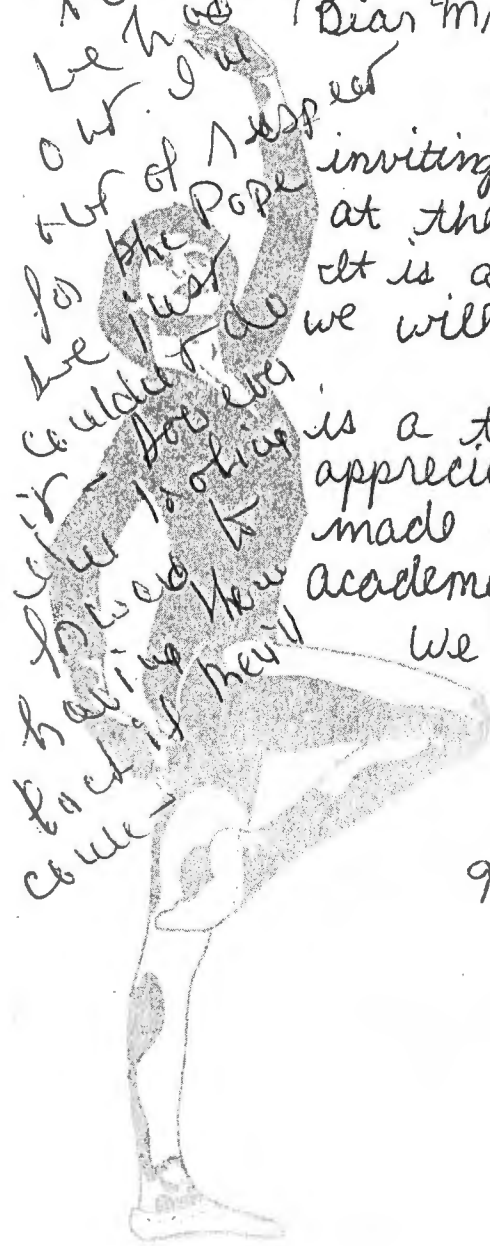 we h
out. I'm
out of respect
for the Pope
we just
couldn't do
it - However
looking
forward to
having them
back if they'll
come -
Dear M
inviting
at the
It is a
we will
is a t
appreci
made
academ
We